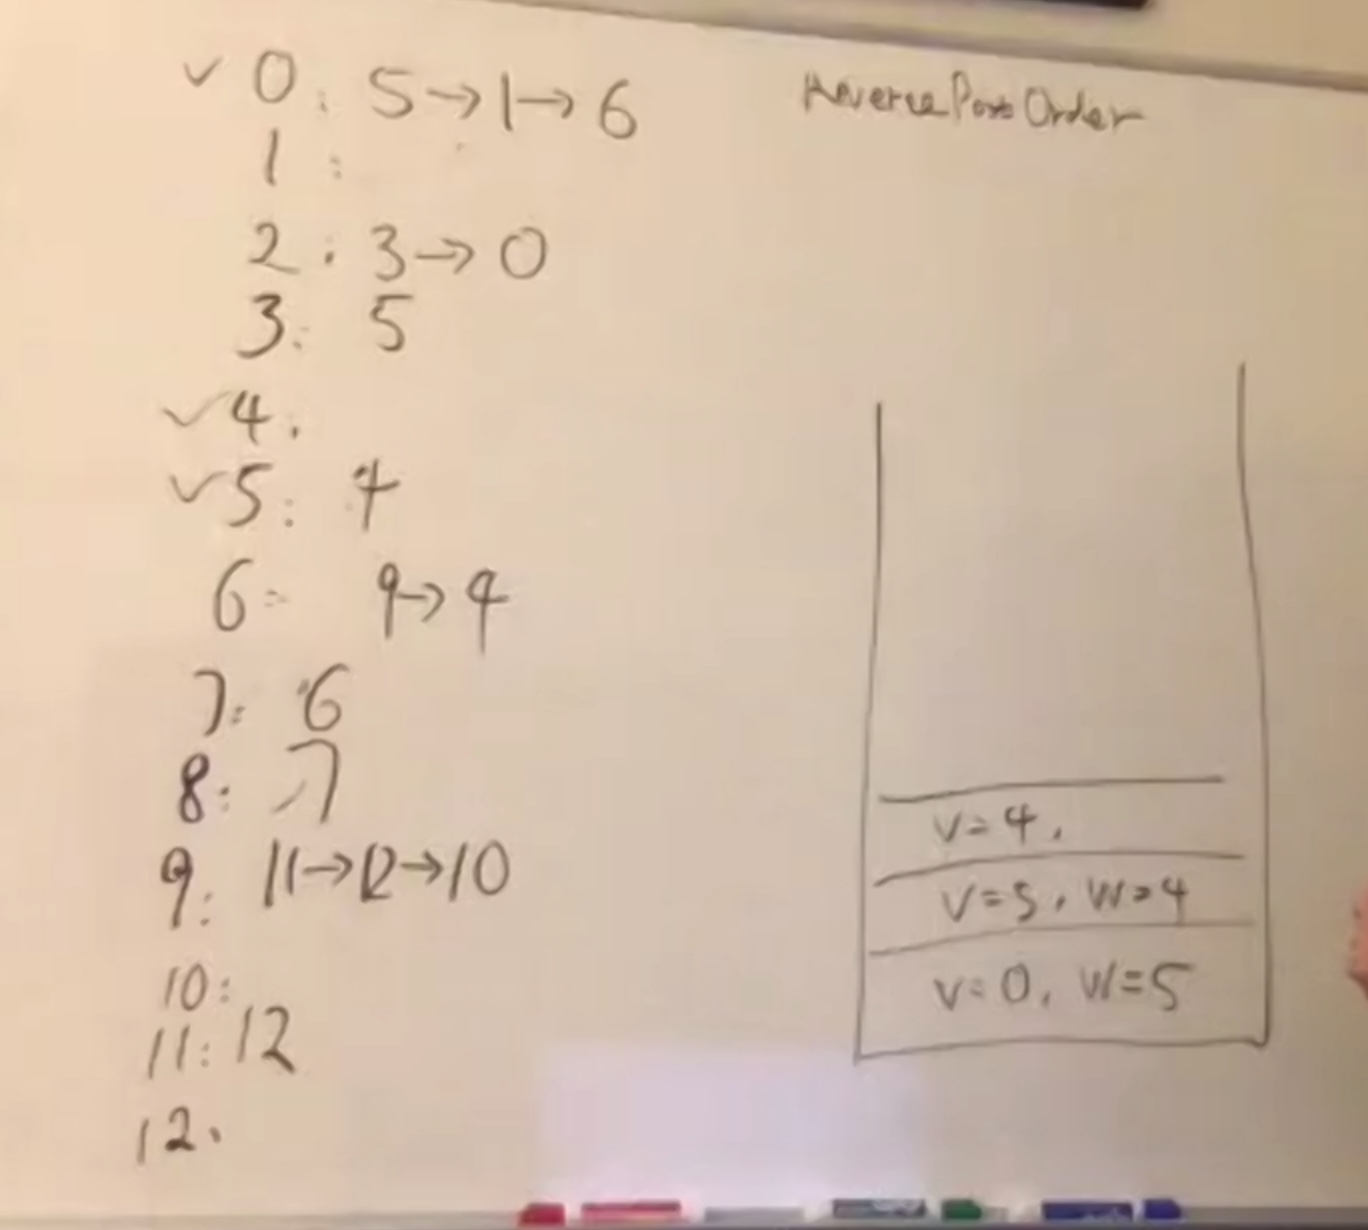 ✓ 0: 5→1→6
1:
2: 3→0
3: 5
✓ 4:
✓ 5: 4
6: 9→4
7: 6
8: 7
9: 11→12→10
10:
11: 12
12:
ReversePostOrder
V=4,
V=5, W=4
V=0, W=5